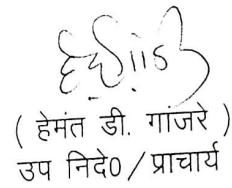 ( हेमंत डी. गांजरे )
उप निदे0 / प्राचार्य